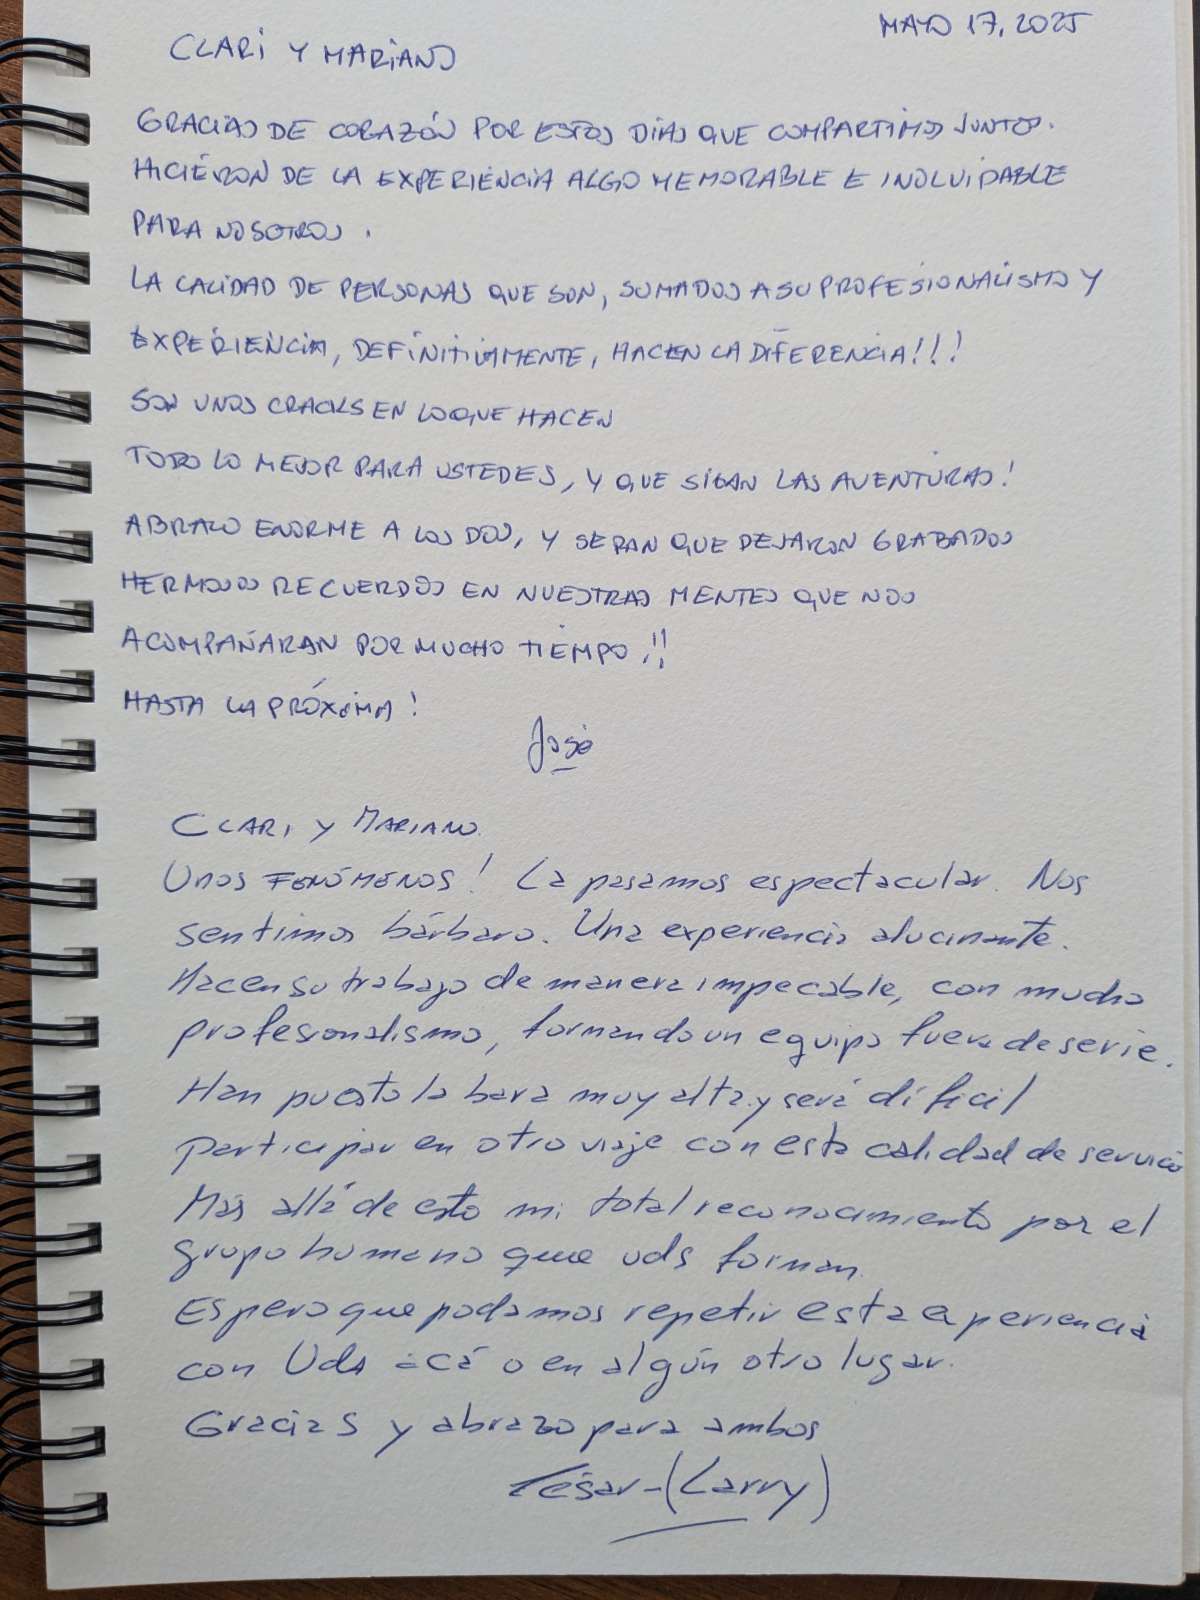 MAYO 17, 2025
CLARI Y MARIANO
GRACIAS DE CORAZÓN POR ESTOS DÍAS QUE COMPARTIMOS JUNTOS.
HICIÉRON DE LA EXPERIENCIA ALGO MEMORABLE E INOLVIDABLE
PARA NOSOTROS.
LA CALIDAD DE PERSONAS QUE SON, SUMADOS A SU PROFESIONALISMO Y
EXPERIENCIA, DEFINITIVAMENTE, HACEN LA DIFERENCIA!!!
SON UNOS CRACKS EN LO QUE HACEN
TODO LO MEJOR PARA USTEDES, Y QUE SIGAN LAS AVENTURAS!
ABRAZO ENORME A LOS DOS, Y SEPAN QUE DEJARON GRABADOS
HERMOSOS RECUERDOS EN NUESTRAS MENTES QUE NOS
ACOMPAÑARAN POR MUCHO TIEMPO!!
HASTA LA PRÓXIMA!
José
CLARI Y MARIANO.
Unos FENÓMENOS! La pasamos espectacular. Nos
sentimos bárbaro. Una experiencia alucinante.
Hacen su trabajo de manera impecable, con mucho
profesionalismo, formando un equipo fuera de serie.
Han puesto la bara muy alta y será dificil
participar en otro viaje con esta calidad de servicio
Más allá de esto mi total reconocimiento por el
grupo humano que uds forman.
Espero que podamos repetir esta experiencia
con Uds acá o en algún otro lugar.
Gracias y abrazo para ambos
César - (Larry)